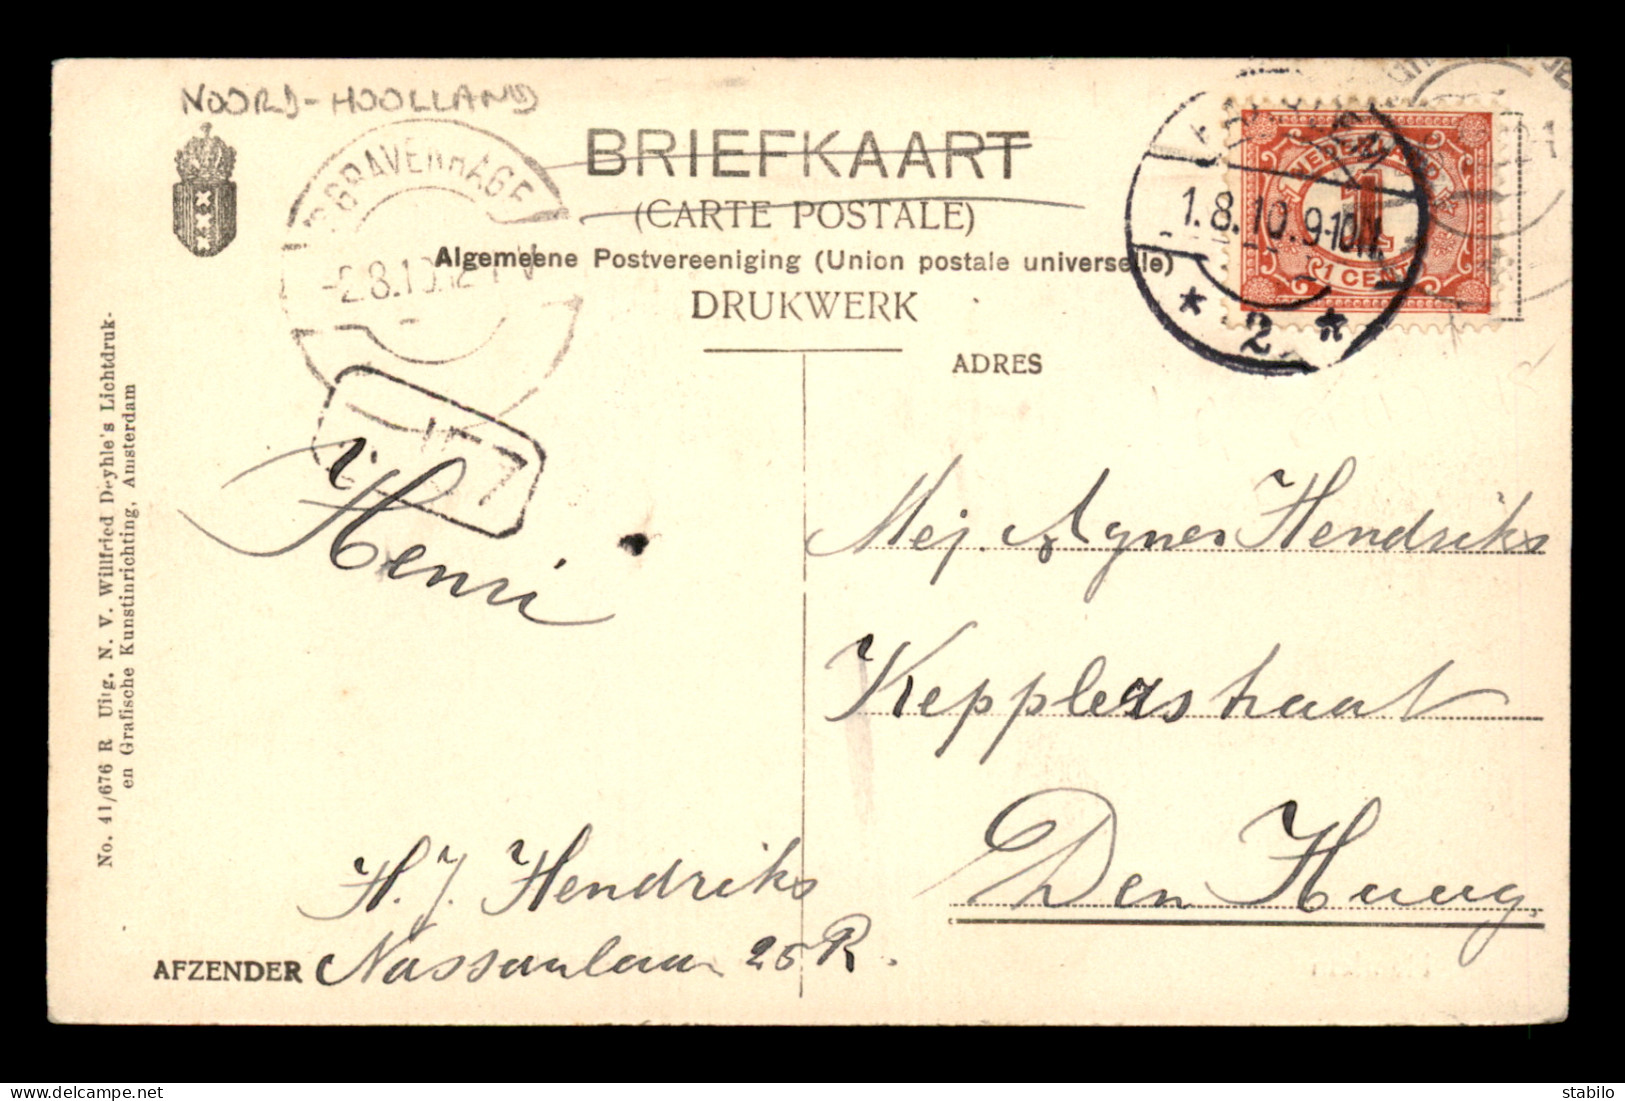 NOORD-HOOLLAND
BRIEFKAART
(CARTE POSTALE)
Algemeene Postvereeniging (Union postale universelle)
DRUKWERK
'SGRAVENHAGE
-2.8.10.12-1 V
1.8.10.9-10N.
* 2 *
NEDERLAND
1
1 CENT
ADRES
Henri
Mej. Agnes Hendriks
Kepplerstraat
Den Haag.
H. J. Hendriks
AFZENDER Nassaulaan 25 R.
No. 41/676 R Uitg. N. V. Willfried Deyhle's Lichtdruk-
en Grafische Kunstinrichting, Amsterdam
stabilo